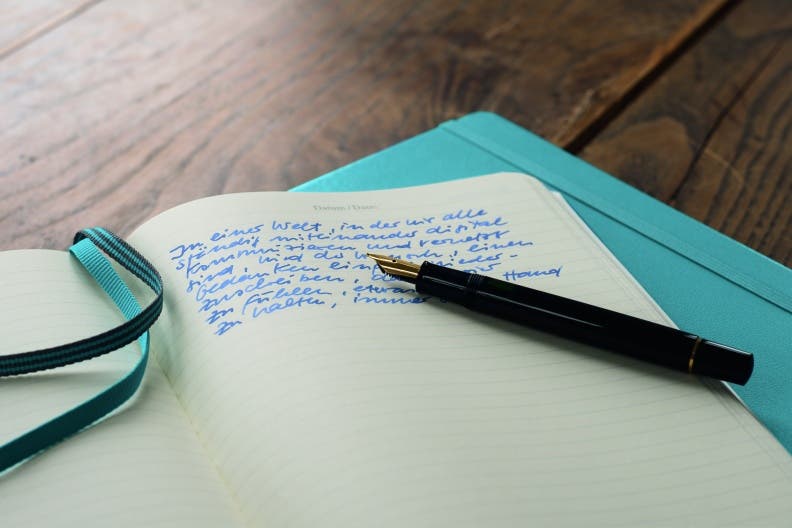 Datum / Date
In einer Welt, in der wir alle
ständig miteinander digital
kommunizieren und vernetzt
sind, wird das einen
Gedanken nieder-
zuschreiben, Hand
zu fühlen, etwas
zu halten, immer